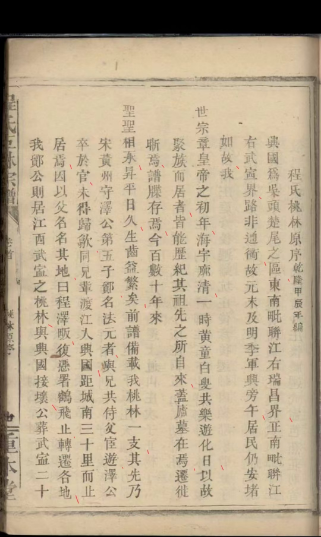 程氏桃林原序乾隆甲辰年編
興國爲吳頭楚尾之區東南毗聯江右瑞昌界正南毗聯江
右武寧界路非通衢故元末及明季軍興旁午居民仍安堵
如故我
世宗章皇帝之初年海宇廓清一時黄童白叟共樂遊化日以故
聚族而居者皆能歷紀其祖先之所自來蓋廬墓在焉遷徙
斯焉譜牒存焉今百數十年來
聖聖相承昇平日久生齒益繁矣前譜備載我桃林一支其先乃
宋黄州守澤公第五子鄧名法元者與兄共侍父宦遊澤公
卒於官未得歸歙同兄輩渡江人興國距城南三十里而止
居焉因以父名名其地曰程澤畈復慮署鶴飛止轉遷各地
我鄧公則居江西武寧之桃林與興國接壤公葬武寧二十
程氏桃林宗譜
卷首
桃林原序
皇本堂